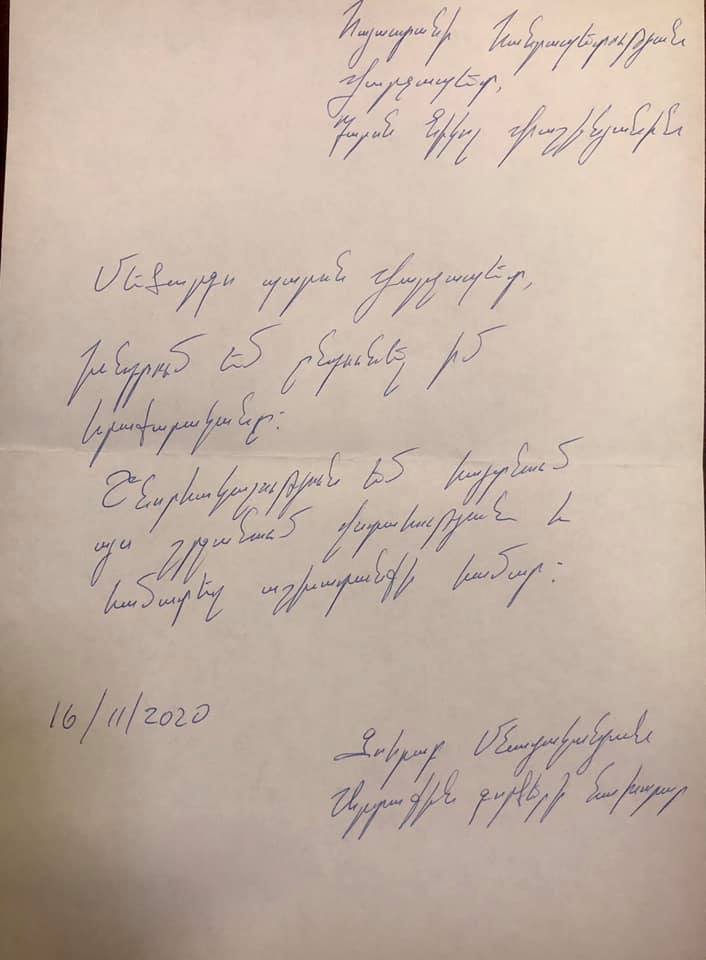 Հայաստանի Հանրապետության
վարչապետ,
Պարոն Նիկոլ Փաշինյանին
Մեծարգո պարոն վարչապետ,
խնդրում եմ ընդունել իմ
հրաժարականը։
Շնորհակալություն եմ հայտնում
այս շրջանում վստահության և
համատեղ աշխատանքի համար։
16/11/2020
Զոհրաբ Մնացականյան
Արտաքին գործերի նախարար